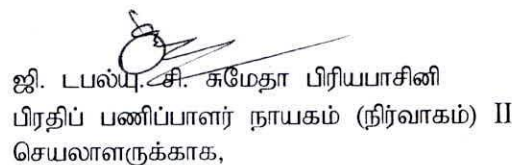 ஜி. டபல்யு. சி. சுமேதா பிரியபாசினி
பிரதிப் பணிப்பாளர் நாயகம் (நிர்வாகம்) II
செயலாளருக்காக,